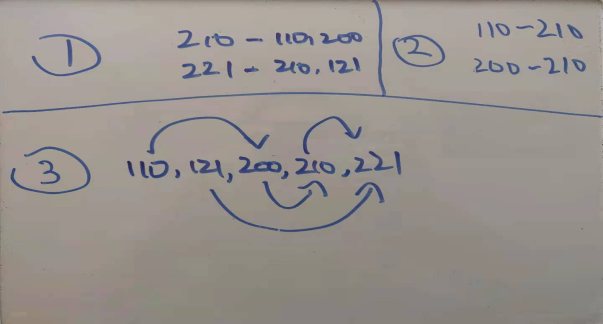 1
210 - 110, 200
221 - 210, 121
2
110 - 210
200 - 210
3
110, 121, 200, 210, 221